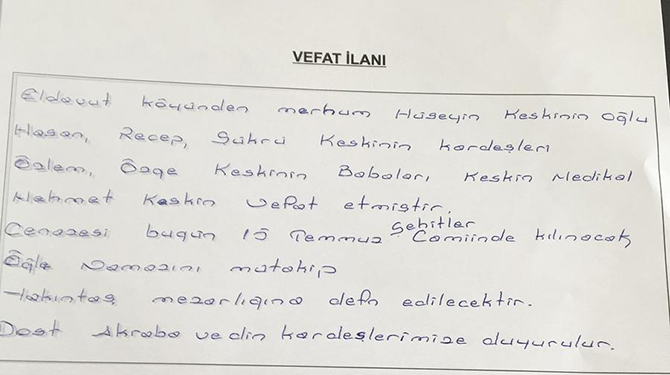 VEFAT İLANI
Eldavut köyünden merhum Hüseyin Keskinin oğlu
Hasan, Recep, Şükrü Keskinin kardeşleri
Özlem, Özge Keskinin Babaları, Keskin Medikal
Mehmet Keskin vefat etmiştir.
Cenazesi bugün 15 Temmuz Şehitler Camiinde kılınacak
Öğle Namazını mütakip
mezarlığına defn edilecektir.
Dost Akraba ve din kardeşlerimize duyurulur.